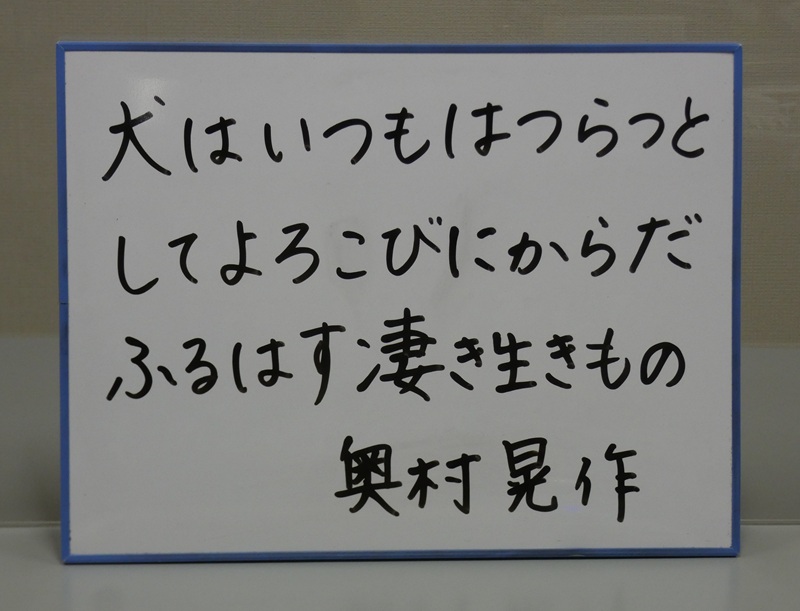 犬はいつもはつらつと
してよろこびにからだ
ふるはす凄き生きもの
奥村晃作